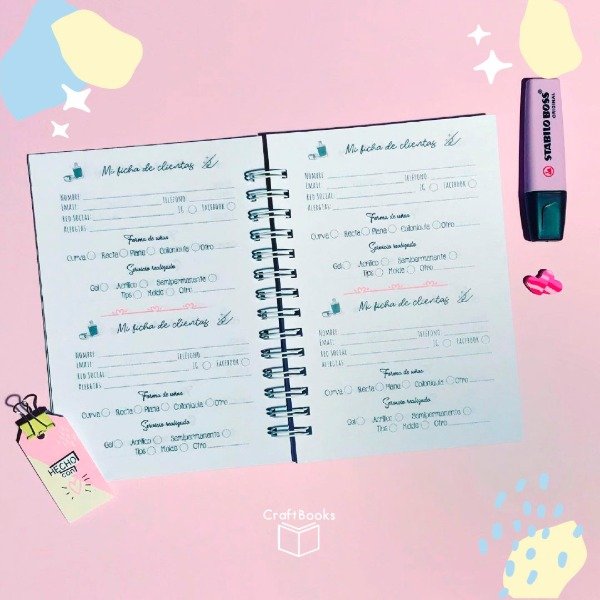 Mi ficha de clientas
NOMBRE TELÉFONO
EMAIL
RED SOCIAL IG FACEBOOK
ALERGIAS
Forma de uñas
Curva Recta Plana Otro
Servicio realizado
Gel Acrílico Semipermanente
Tips Molde Otro
Mi ficha de clientas
NOMBRE TELÉFONO
EMAIL
RED SOCIAL IG FACEBOOK
ALERGIAS
Forma de uñas
Curva Recta Plana Otro
Servicio realizado
Gel Acrílico Semipermanente
Tips Molde Otro
Mi ficha de clientas
NOMBRE TELÉFONO
EMAIL
RED SOCIAL IG FACEBOOK
ALERGIAS
Forma de uñas
Curva Recta Plana Otro
Servicio realizado
Gel Acrílico Semipermanente
Tips Molde Otro
Mi ficha de clientas
NOMBRE TELÉFONO
EMAIL
RED SOCIAL IG FACEBOOK
ALERGIAS
Forma de uñas
Curva Recta Plana Otro
Servicio realizado
Gel Acrílico Semipermanente
Tips Molde Otro
STABILO BOSS
ORIGINAL
HECHO
con
CraftBooks